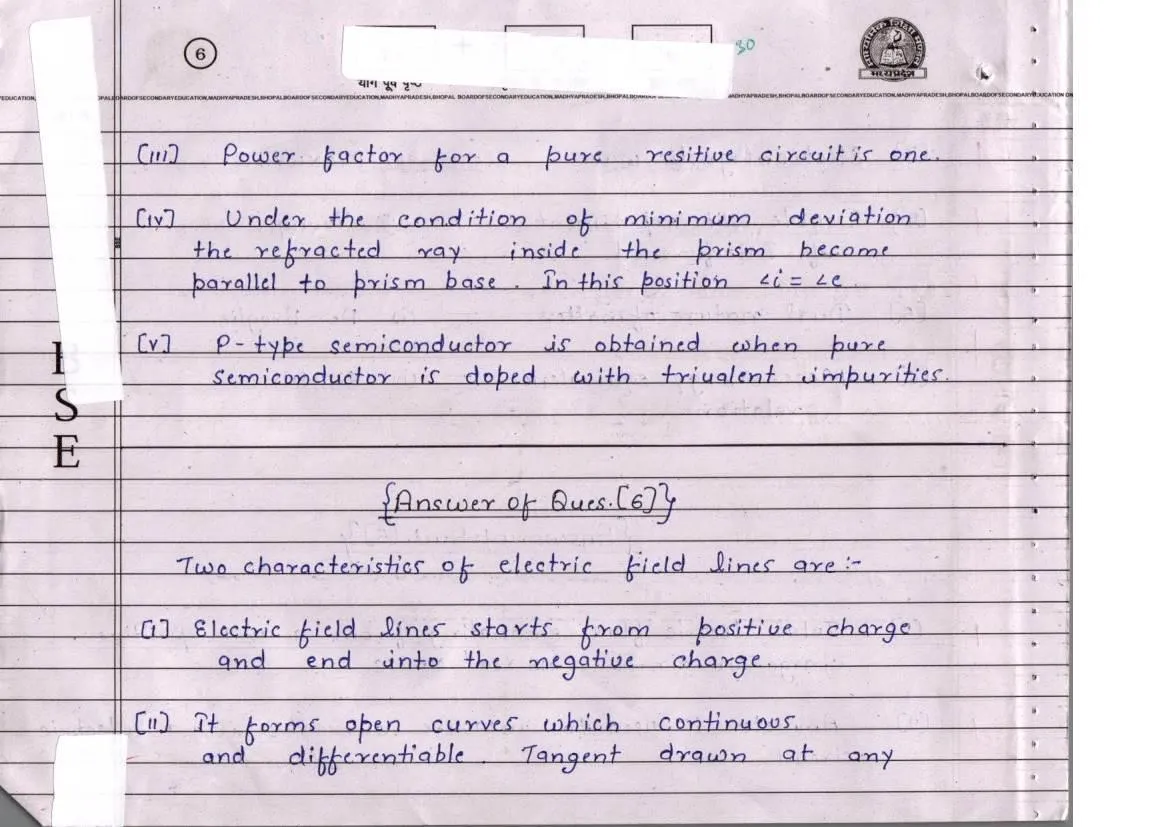 6
30
माध्यमिक शिक्षा मण्डल
मध्यप्रदेश
योग पूर्व पृष्ठ
BOARD OF SECONDARY EDUCATION, MADHYA PRADESH, BHOPAL
[iii] Power factor for a pure resitive circuit is one.
[iv] Under the condition of minimum deviation
the refracted ray inside the prism become
parallel to prism base. In this position ∠i = ∠e
[v] P-type semiconductor is obtained when pure
semiconductor is doped with trivalent impurities.
S
E
{Answer of Ques.[6]}
Two characteristics of electric field lines are :-
[i] Electric field lines starts from positive charge
and end into the negative charge.
[ii] It forms open curves which continuous
and differentiable. Tangent drawn at any